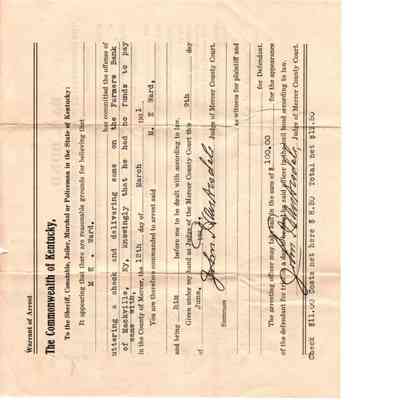 Warrant of Arrest
The Commonwealth of Kentucky,
To the Sheriff, Constable, Jailer, Marshal or Policeman in the State of Kentucky:
It appearing that there are reasonable grounds for believing that
M E . Ward.
has committed the offense of
uttering a check and delivering same on the Farmers Bank
of Mackville, Ky, knowingly that he had no funds to pay
same with,
in the County of Mercer, the 12th day of March 1931
You are therefore commanded to arrest said M. E Ward,
and bring him before me to be dealt with according to law.
Given under my hand as Judge of the Mercer County Court this 9th day
of June,
Judge of Mercer County Court.
Summons
as witness for plaintiff and
for Defendant.
The arresting officer may take bail in the sum of $ 100.00 for the appearance
of the defendant for trial
said officer
bail bond according to law.
Judge of Mercer County Court.
Check $11.00 Costs net here $ 8.80 Total net $19.80